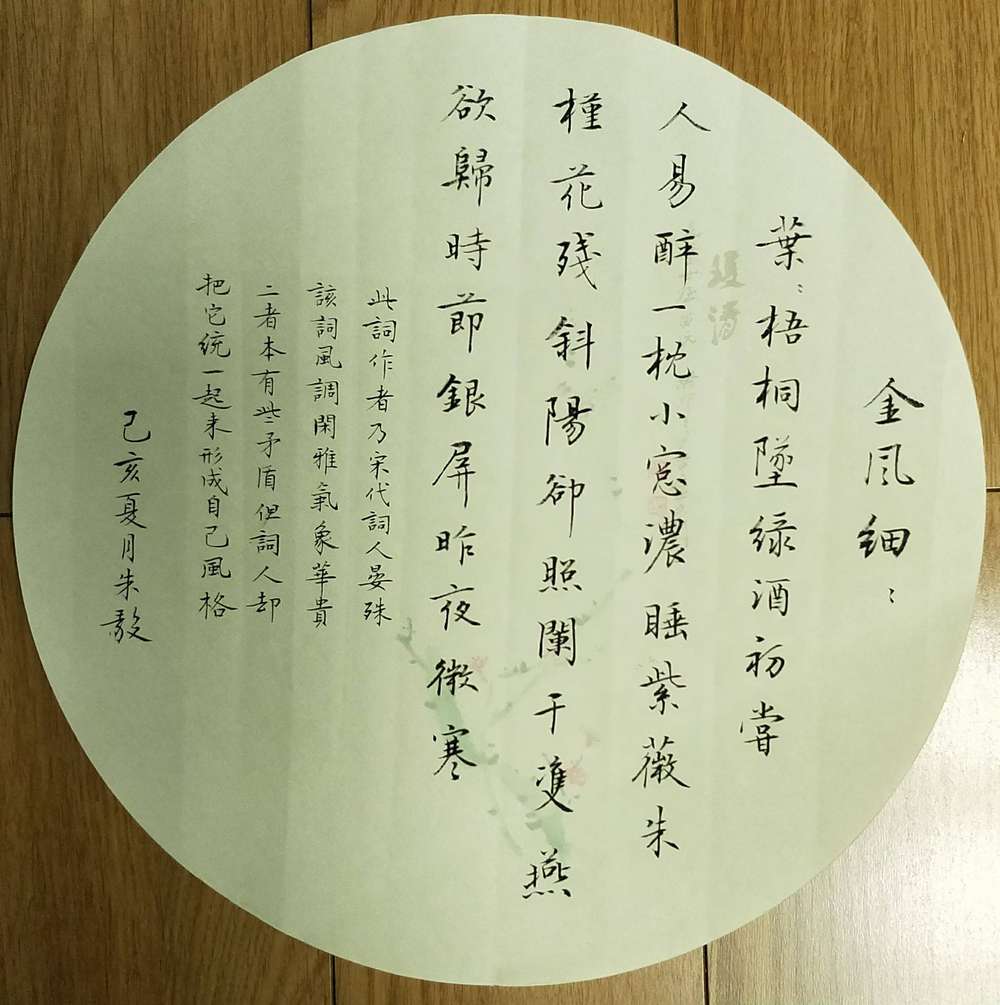 金風細:
葉:梧桐墜綠酒初嘗
人易醉一枕小窗濃睡紫薇朱
槿花殘斜陽卻照闌干雙燕
欲歸時節銀屏昨夜微寒
此詞作者乃宋代詞人晏殊
該詞風調閑雅氣象華貴
二者本有些矛盾但詞人却
把它統一起来形成自己風格
己亥夏月朱毅